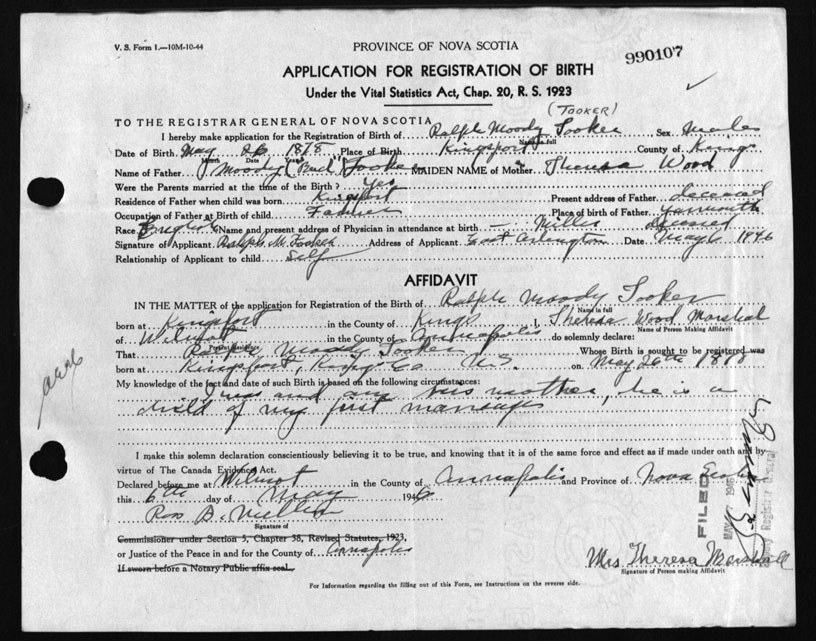 V. S. Form 1.—10M-10-44
PROVINCE OF NOVA SCOTIA
990107
APPLICATION FOR REGISTRATION OF BIRTH
Under the Vital Statistics Act, Chap. 20, R. S. 1923
(TOOKER)
TO THE REGISTRAR GENERAL OF NOVA SCOTIA
I hereby make application for the Registration of Birth of Ralph Moody Tooker Sex Male
Name in full
Date of Birth May 26 1878 Place of Birth Kingsport County of Kings
Month Date Year
Name of Father Moody Tooker MAIDEN NAME of Mother Theresa Wood
Were the Parents married at the time of the Birth? Yes
Residence of Father when child was born Kingsport Present address of Father deceased
Occupation of Father at Birth of child Farmer Place of birth of Father Yarmouth
Race English Name and present address of Physician in attendance at birth — Miller deceased
Signature of Applicant Ralph M. Tooker Address of Applicant East Arlington Date May 6 1946
Relationship of Applicant to child Self
AFFIDAVIT
IN THE MATTER of the application for Registration of the Birth of Ralph Moody Tooker
Name in full
born at Kingsport in the County of Kings I, Theresa Wood Marshal
Name of Person Making Affidavit
of Wilmot in the County of Annapolis do solemnly declare:
That Ralph Moody Tooker Whose Birth is sought to be registered was
born at Kingsport, Kings Co N.S. on May 26th 1878
My knowledge of the fact and date of such Birth is based on the following circumstances:
I was and am his mother, he is a
child of my first marriage
I make this solemn declaration conscientiously believing it to be true, and knowing that it is of the same force and effect as if made under oath and by
virtue of The Canada Evidence Act.
Declared before me at Wilmot in the County of Annapolis and Province of Nova Scotia
this 6th day of May 1946
Ross B.
Signature of
Commissioner under Section 5, Chapter 38, Revised Statutes, 1923,
or Justice of the Peace in and for the County of Annapolis
If sworn before a Notary Public affix seal.
Mrs Theresa Marshall
Signature of Person making Affidavit
For Information regarding the filling out of this Form, see Instructions on the reverse side.
FILED
MAY 1946
Registrar General